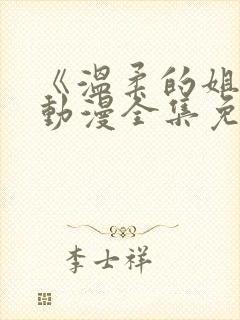 《温柔的姐
动漫全集免
李士祥